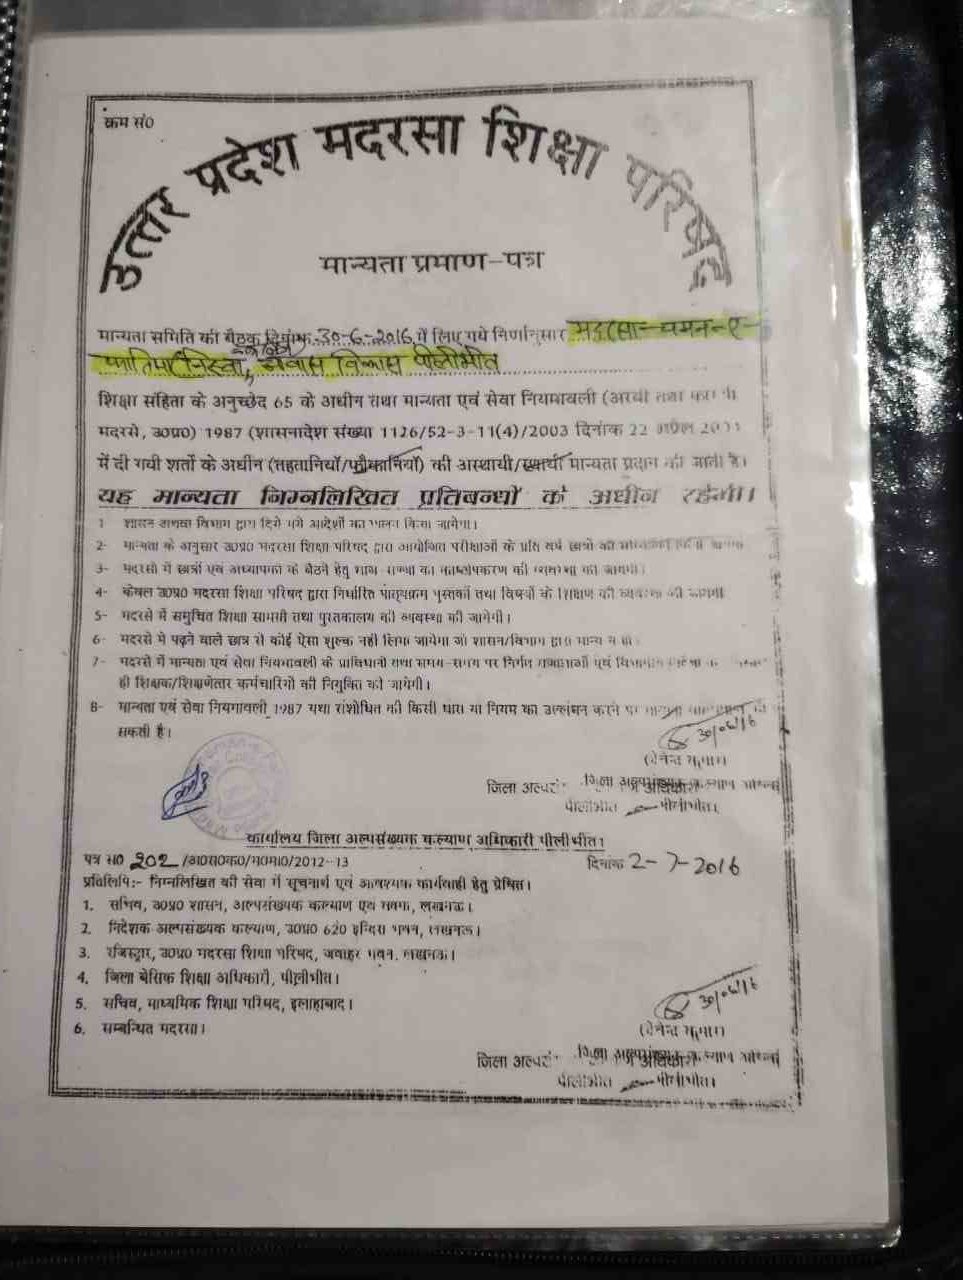 क्रम सं०
उत्तर प्रदेश मदरसा शिक्षा परिषद
मान्यता प्रमाण-पत्र
मान्यता समिति की बैठक दिनांक 30-6-2016 में लिए गये निर्णानुसार मदरसा-चमन-ए-
फातिमा निस्वा, आवास विकास पीलीभीत
शिक्षा संहिता के अनुच्छेद 65 के अधीन तथा मान्यता एवं सेवा नियमावली (अरबी तथा
मदरसे, उ०प्र०) 1987 (शासनादेश संख्या 1126/52-3-11(4)/2003 दिनांक 22 अप्रैल
में दी गयी शर्तो के अधीन (तहतानियॉं/फौकानियॉं) की अस्थायी/स्थायी मान्यता प्रदान की जाती है।
यह मान्यता निम्नलिखित प्रतिबन्धों के अधीन रहेगी।
1 शासन अथवा विभाग द्वारा दिये गये आदेशों का पालन किया जायेगा।
2- मान्यता के अनुसार उ०प्र० मदरसा शिक्षा परिषद द्वारा आयोजित परीक्षाओं के प्रति वर्ष छात्रों को
3- मदरसे में छात्रों एवं अध्यापकों के बैठने हेतु साज-सज्जा की व्यवस्था की जायेगी।
4- केवल उ०प्र० मदरसा शिक्षा परिषद द्वारा निर्धारित पाठ्यक्रम पुस्तकों तथा विषयों के शिक्षण की व्यवस्था की जायेगी
5- मदरसे में समुचित शिक्षा सामग्री तथा पुस्तकालय की व्यवस्था की जायेगी।
6- मदरसे मे पढ़ने वाले छात्र से कोई ऐसा शुल्क नही लिया जायेगा जो शासन/विभाग द्वारा मान्य न हो।
7- मदरसे में मान्यता एवं सेवा नियमावली के प्राविधानों तथा समय-समय पर निर्गत शासनादेशों एवं विभागीय
ही शिक्षक/शिक्षणेत्तर कर्मचारियों की नियुक्ति की जायेगी।
8- मान्यता एवं सेवा नियमावली 1987 यथा संशोधित की किसी धारा या नियम का उल्लंघन करने पर मान्यता की
सकती है।
30/06/16
जिला अल्पसंख्यक कल्याण अधिकारी
पीलीभीत पीलीभीत।
कार्यालय जिला अल्पसंख्यक कल्याण अधिकारी पीलीभीत।
पत्र सं० 202 /अ०सं०क०/म०मा०/2012-13 दिनांक 2-7-2016
प्रतिलिपि:- निम्नलिखित की सेवा में सूचनार्थ एवं आवश्यक कार्यवाही हेतु प्रेषित।
1. सचिव, उ०प्र० शासन, अल्पसंख्यक कल्याण एवं वक्फ, लखनऊ।
2. निदेशक अल्पसंख्यक कल्याण, उ०प्र० 620 इन्दिरा भवन, लखनऊ।
3. रजिस्ट्रार, उ०प्र० मदरसा शिक्षा परिषद, जवाहर भवन, लखनऊ।
4. जिला बेसिक शिक्षा अधिकारी, पीलीभीत।
5. सचिव, माध्यमिक शिक्षा परिषद, इलाहाबाद।
6. सम्बन्धित मदरसा।
30/06/16
जिला अल्पसंख्यक कल्याण अधिकारी
पीलीभीत पीलीभीत।